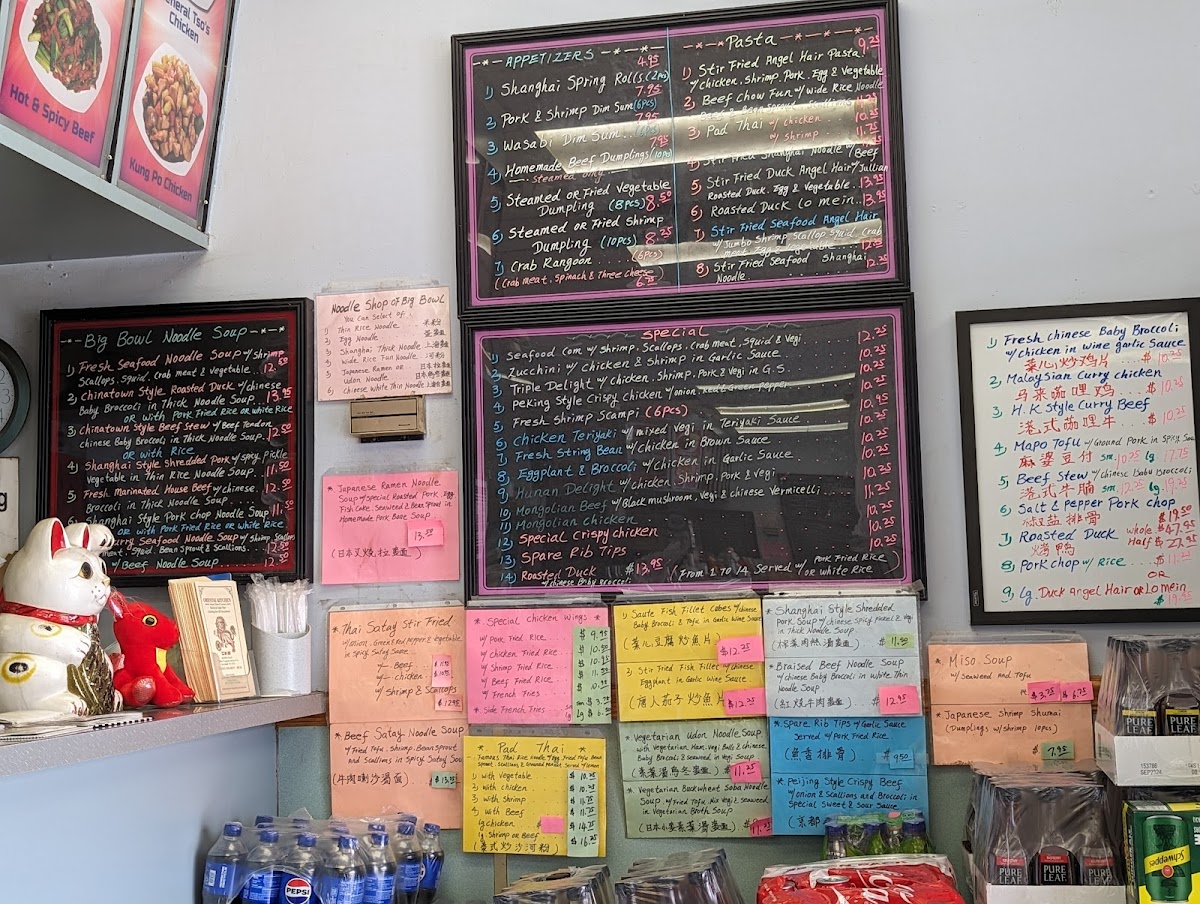 General Tso's
Chicken
Hot & Spicy Beef
Kung Po Chicken
APPETIZERS
4.95
1) Shanghai Spring Rolls (2pcs)
7.95
2) Pork & Shrimp Dim Sum (6pcs)
7.95
3) Wasabi Dim Sum
7.95
4) Homemade Beef Dumplings (10pcs)
steamed only
5) Steamed or Fried Vegetable
Dumpling (8pcs) 8.50
6) Steamed or Fried Shrimp
Dumpling (10pcs) 8.25
7) Crab Rangoon (6pcs)
(Crab meat. Spinach & Three Cheese)
6.75
Pasta
9.25
1) Stir Fried Angel Hair Pasta
w/ chicken. Shrimp. Pork. Egg & Vegetable
2) Beef Chow Fun w/ Wide Rice Noodle
11.25
3) Pad Thai w/ chicken 10.25
w/ Shrimp 11.75
4) Stir Fried Shanghai Noodle w/ Beef
5) Stir Fried Duck Angel Hair w/ Jullian
Roasted Duck. Egg & Vegetable. 13.95
6) Roasted Duck Lo mein.. 13.95
7) Stir Fried Seafood Angel Hair
w/ Jumbo Shrimp. Scallop. Squid. Crab
Meat Egg & Vegetable
8) Stir Fried Seafood Shanghai
Noodle 12.25
Big Bowl Noodle Soup
1) Fresh Seafood Noodle Soup w/ Shrimp
Scallops. Squid. Crab meat & Vegetable. 12.50
2) Chinatown Style Roasted Duck w/ chinese
Baby Broccoli in Thick Noodle Soup. 13.95
OR with Pork Fried Rice or White Rice
3) Chinatown Style Beef Stew w/ Beef Tendon
chinese Baby Broccoli in Thick Noodle Soup. 12.50
OR with Rice
4) Shanghai Style Shredded Pork w/ Spicy. Pickle
Vegetable in Thin Rice Noodle Soup. 11.50
5) Fresh Marinated House Beef w/ chinese
Broccoli in Thick Noodle Soup. 12.50
Shanghai Style Pork chop Noodle Soup 11.50
OR with Pork Fried Rice or White Rice
Curry Seafood Noodle Soup w/ Shrimp. Scallops
meat. Squid. Bean Sprout & Scallions. 12.50
w/ Beef Noodle Soup. 12.50
Noodle Shop of Big Bowl
You Can Select of
1) Thin Rice Noodle 米粉
2) Egg Noodle
3) Shanghai Thick Noodle
4) Wide Rice Fun Noodle 河粉
5) Japanese Ramen or
Udon Noodle
6) Chinese White Thin Noodle
* Japanese Ramen Noodle
Soup w/ Special Roasted Pork. Egg
Fish Cake. Seaweed & Bean Sprout in
Homemade Pork Bone Soup
13.25
Special
1) Seafood Com w/ Shrimp. Scallops. Crab meat. Squid & Vegi 12.25
2) Zucchini w/ Chicken & Shrimp in Garlic Sauce 10.25
3) Triple Delight w/ Chicken. Shrimp. Pork. Vegi in G.S. 10.25
4) Peking Style Crispy Chicken w/ onion. Red & Green pepper 10.25
5) Fresh Shrimp Scampi (6pcs) 10.95
6) Chicken Teriyaki w/ mixed vegi in Teriyaki Sauce 10.25
7) Fresh String Bean w/ chicken in Brown Sauce 10.25
8) Eggplant & Broccoli w/ chicken in Garlic Sauce 10.25
9) Hunan Delight w/ chicken. Shrimp. Pork & Vegi 10.25
10) Mongolian Beef w/ Black mushroom. Vegi & chinese Vermicelli 11.25
11) Mongolian chicken 10.25
12) Special crispy chicken 10.25
13) Spare Rib Tips 10.25
14) Roasted Duck $13.95
w/ chinese Baby Broccoli
From 1 to 14 Served w/ Pork Fried Rice
or white Rice
1) Fresh chinese Baby Broccoli
w/ chicken in Wine garlic Sauce
菜心炒鸡片 $ 10.25
2) Malaysian Curry chicken
马来咖哩鸡 $ 10.25
3) H.K Style Curry Beef
港式咖哩牛 $ 10.25
4) Mapo Tofu w/ Ground Pork in Spicy Sauce
麻婆豆付 sm 10.25 lg 17.75
5) Beef Stew w/ chinese Baby Broccoli
港式牛腩 sm 12.25 lg 19.25
6) Salt & Pepper Pork chop
椒盐排骨 $19.50
7) Roasted Duck whole $47.95
烤鸭 Half $27.95
8) Pork chop w/ Rice... $ 11.25
OR
9) Lg. Duck Angel Hair or Lo mein
* Thai Satay Stir Fried
w/ onion. Green & Red pepper & vegetable
in Spicy Satay Sauce
Beef
chicken
w/ Shrimp & Scallops
* Beef Satay Noodle Soup
w/ Fried Tofu. Shrimp. Bean Sprout
and Scallions in Spicy Satay Soup
* Special chicken wings *
w/ Pork Fried Rice $ 9.95
w/ chicken Fried Rice $ 10.95
w/ Shrimp Fried Rice
w/ Beef Fried Rice
w/ French Fries
* Side French Fries
* Pad Thai *
1) with Vegetable $ 10.25
2) with chicken
3) with Shrimp $ 11.75
4) with Beef $ 11.75
lg chicken $ 14.75
lg Shrimp or Beef $ 16.25
(泰式炒沙河粉)
1) Saute Fish Fillet Cubes w/ chinese
Baby Broccoli & Tofu in Garlic Wine Sauce
(菜心豆腐炒魚片) $12.25
2) Stir Fried Fish Fillet w/ chinese
Eggplant in Garlic Wine Sauce
$12.25
* Vegetarian Udon Noodle Soup
with Vegetarian Ham. Vegi Balls & chinese
Baby Broccoli & Seaweed in Vegi Soup
11.25
* Vegetarian Buckwheat Soba Noodle
Soup w/ Fried Tofu. Mix Vegi & Seaweed
in Vegetarian Broth Soup
Shanghai Style Shredded
Pork Soup w/ chinese Spicy Pickled & Vegi
in Thick Noodle Soup
$ 11.50
* Braised Beef Noodle Soup
w/ chinese Baby Broccoli in white Thin
Noodle Soup
12.95
* Spare Rib Tips w/ Garlic Sauce
Served w/ Pork Fried Rice
(魚香排骨) $9.50
* Peijing Style Crispy Beef
w/ onion & Scallions and Broccoli in
Special Sweet & Sour Sauce
* Miso Soup
w/ Seaweed and Tofu
$3.75 $6.75
* Japanese Shrimp Shumai
(Dumplings w/ Shrimp 10pcs)
$ 7.95
ORIENTAL KITCHEN
PEPSI
PURE LEAF
PURE LEAF
PURE LEAF
PURE LEAF
PURE LEAF
Schweppes